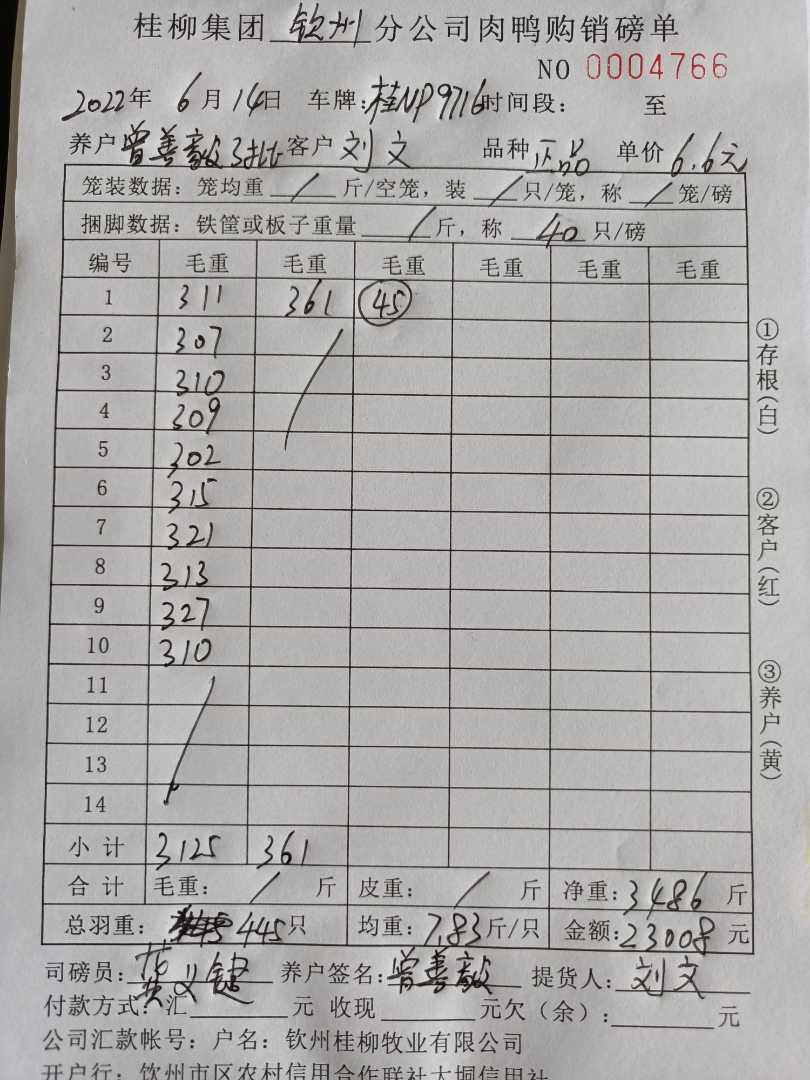 桂柳集团 钦州 分公司肉鸭购销磅单
NO 0004766
2022年 6月14日 车牌:桂NP9716 时间段: 至
养户 曾善毅 3批 客户 刘文 品种 正品 单价 6.6元
笼装数据:笼均重 / 斤/空笼,装 / 只/笼,称 / 笼/磅
捆脚数据:铁筐或板子重量 / 斤,称 40 只/磅
编号 毛重 毛重 毛重 毛重 毛重 毛重
1 311 361 45
2 307 /
3 310
4 309
5 302
6 315
7 321
8 313
9 327
10 310
11 /
12
13
14
小计 3125 361
合计 毛重: / 斤 皮重: / 斤 净重:3486 斤
总羽重: 445只 均重:7.83斤/只 金额:23008元
司磅员:黄义键 养户签名:曾善毅 提货人:刘文
付款方式:汇 元 收现 元欠(余): 元
公司汇款帐号:户名:钦州桂柳牧业有限公司
开户行:钦州市区农村信用合作联社大垌信用社
①存根(白)
②客户(红)
③养户(黄)